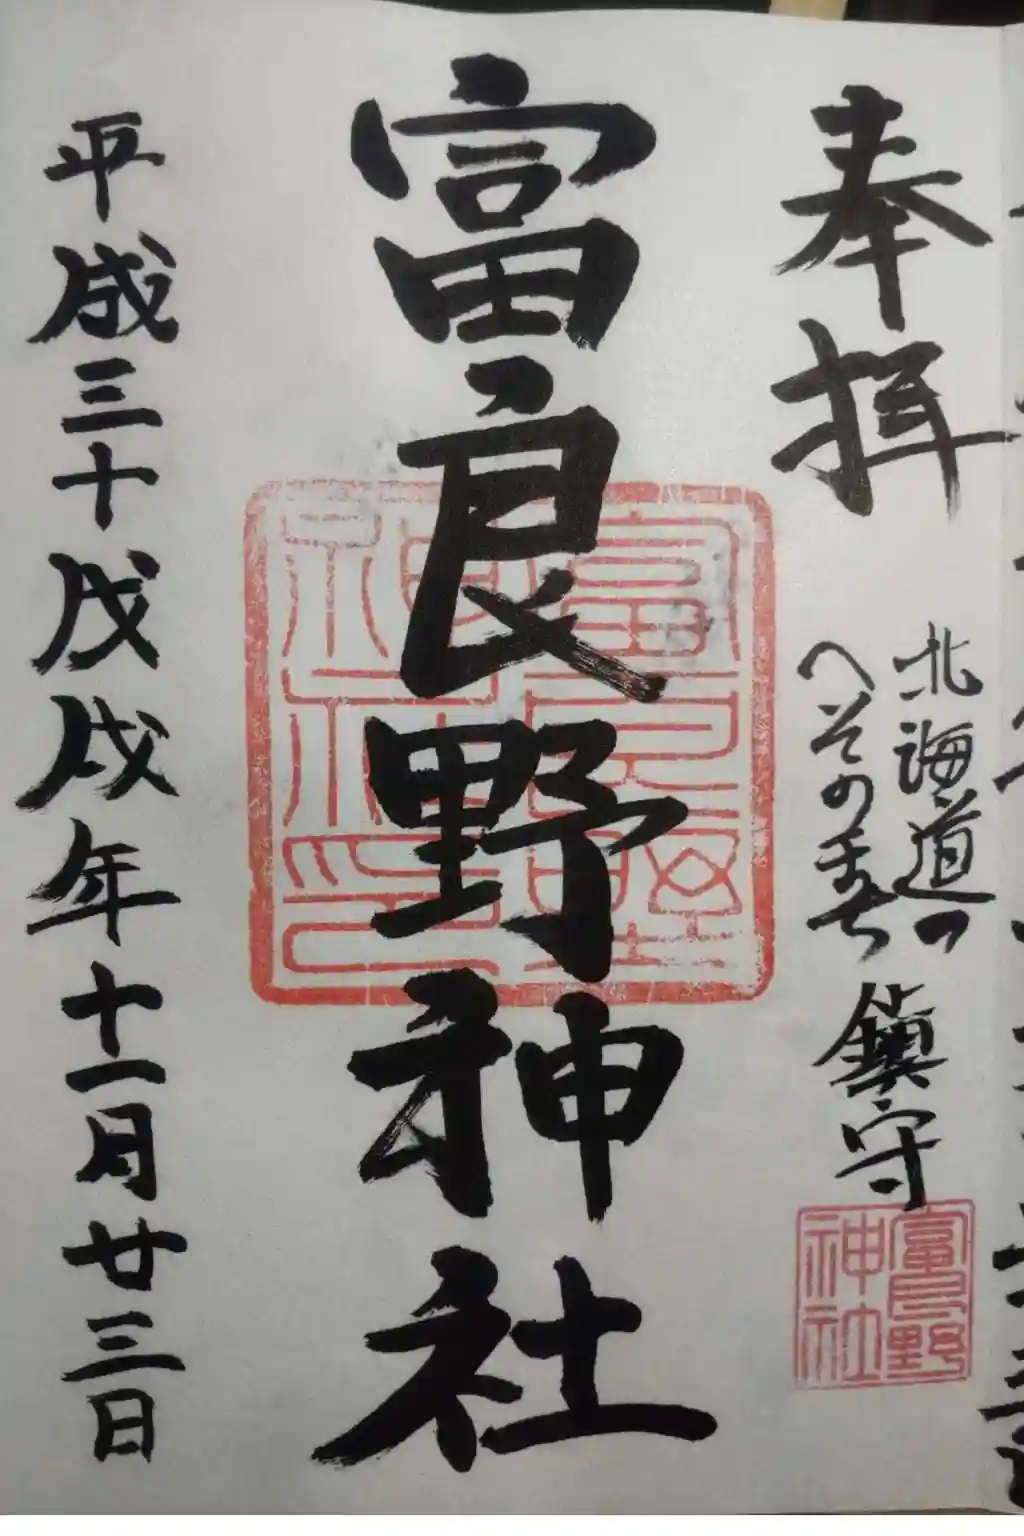 奉拝
北海道の
へそのまち
鎮守
富良野神社
富良野神社
富良野神社印
平成三十戊戌年十一月廿三日